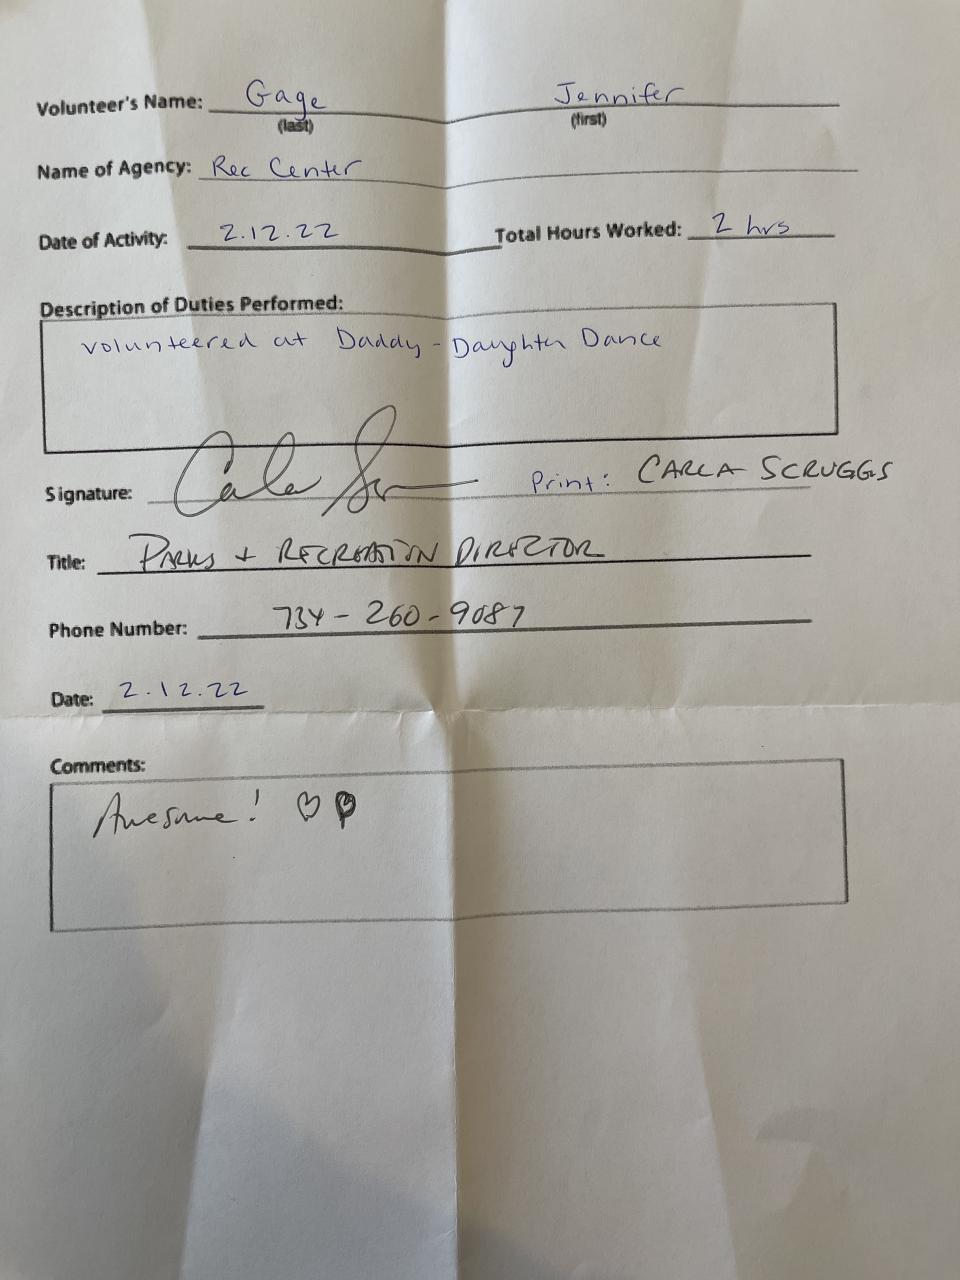 Volunteer's Name: Gage Jennifer
(last) (first)
Name of Agency: Rec Center
Date of Activity: 2.12.22 Total Hours Worked: 2 hrs
Description of Duties Performed:
volunteered at Daddy-Daughter Dance
Signature: Print: CARLA SCRUGGS
Title: PARKS + RECREATION DIRECTOR
Phone Number: 734-260-9087
Date: 2.12.22
Comments:
Awesome! ♡♥